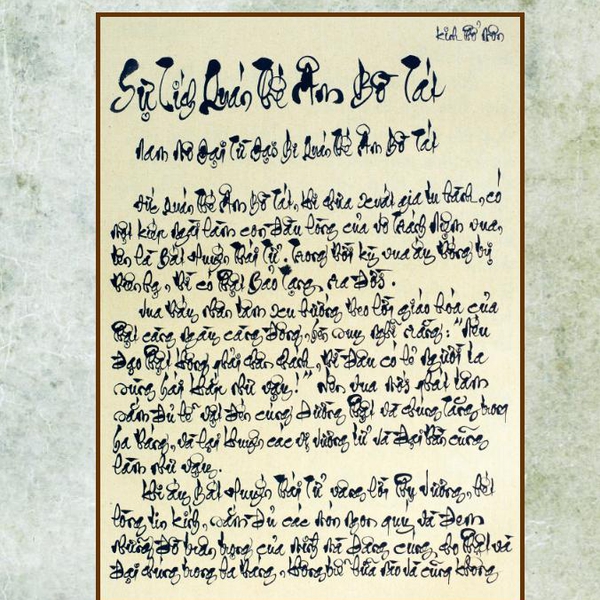 Kinh Phổ Môn
Sự Tích Quán Thế Âm Bồ Tát
Nam Mô Đại Từ Đại Bi Quán Thế Âm Bồ Tát
Đức Quán Thế Âm Bồ Tát, khi chưa xuất gia tu hành, có
một kiếp Ngài làm con đầu lòng của vô Tránh Niệm vua,
tên là Bất Huyền Thái Tử. Trong thời kỳ vua ấy thống trị
thiên hạ, thì có Phật Bảo Tạng ra đời.
Vua thấy nhân tâm xu hướng theo lời giáo hóa của
Phật càng ngày càng đông, bèn suy nghĩ rằng: "Nếu
Đạo Phật không phải chân chánh, thì đâu có lẽ người ta
sùng bái khắp như vậy!" Nên vua mới phát tâm
sắm đủ lễ vật đến cúng dường Phật và chúng Tăng trong
ba tháng, và lại khuyên các vị vương tử và đại thần cũng
làm như vậy.
Khi ấy Bất Huyền Thái Tử vâng lời Phụ Vương, hết
lòng tin kính, sắm đủ các món ngon quý và đem
những đồ trân trọng của mình mà dâng cúng cho Phật và
Đại chúng trong ba tháng, không bữa nào và cũng không